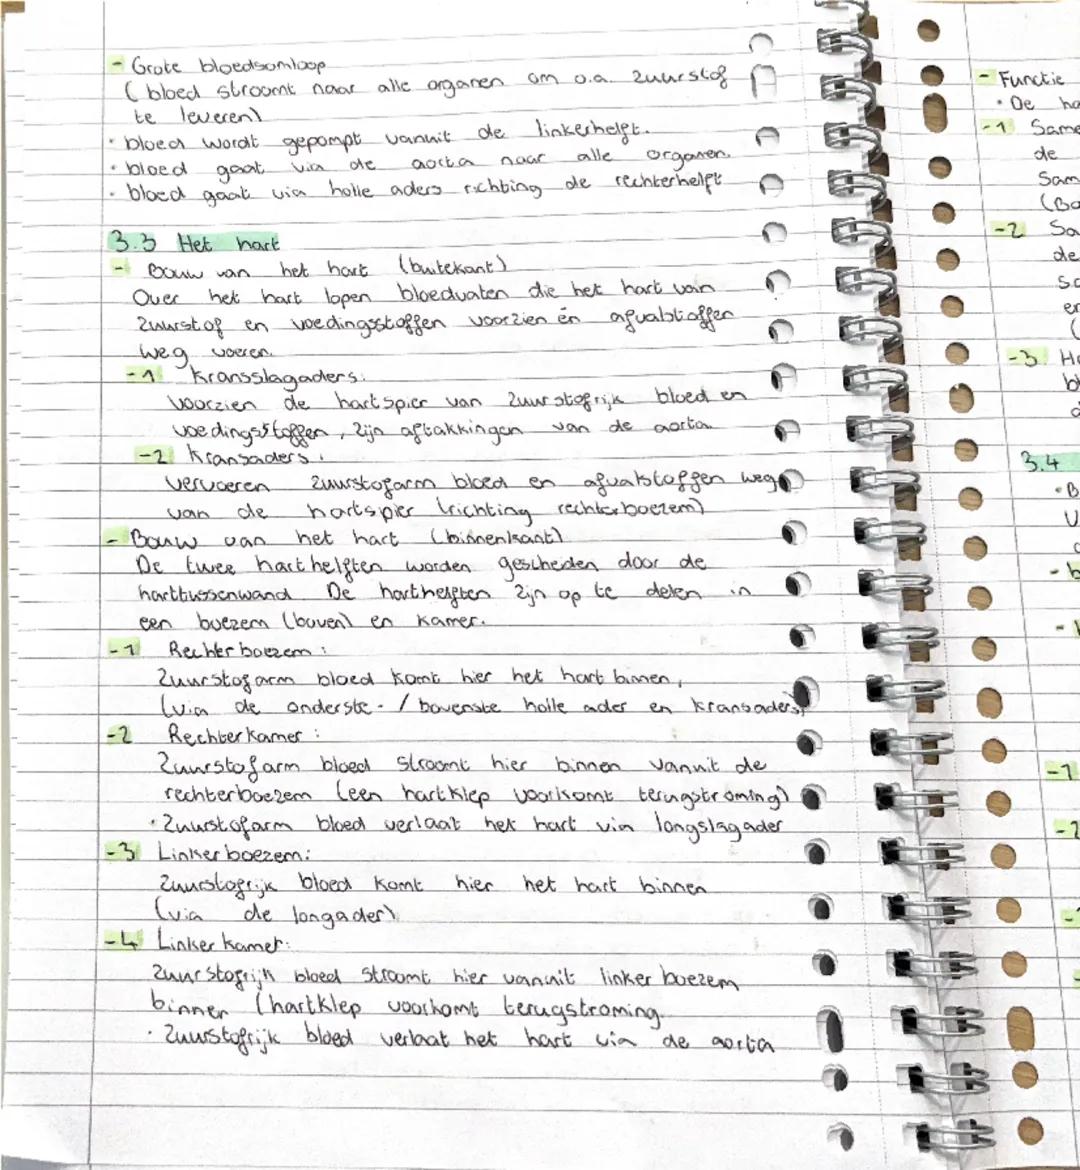 - Grote bloedsomloop
( bloed stroomt naar alle organen om o.a. zuurstof
te leveren)
• bloed wordt gepompt vanuit de linkerhelft.
• bloed gaat via de aorta naar alle organen.
• bloed gaat via holle aders richting de rechterhelft
3.3 Het hart
- Bouw van het hart (buitekant)
Over het hart lopen bloedvaten die het hart van
zuurstof en voedingsstoffen voorzien én afvalstoffen
weg voeren.
-1 Kransslagaders:
voorzien de hartspier van zuurstofrijk bloed en
voedingsstoffen, zijn aftakkingen van de aorta
-2 Kransaders:
vervoeren zuurstofarm bloed en afvalstoffen weg
van de hartspier (richting rechterboezem)
- Bouw van het hart (binnenkant)
De twee harthelften worden gescheiden door de
harttussenwand. De harthelften zijn op te delen in
een boezem (boven) en kamer.
-1 Rechterboezem:
Zuurstofarm bloed komt hier het hart binnen,
(via de onderste- / bovenste holle ader en kransaders)
-2 Rechterkamer:
Zuurstofarm bloed stroomt hier binnen vanuit de
rechterboezem (een hartklep voorkomt terugstroming)
• Zuurstofarm bloed verlaat het hart via longslagader
-3 Linkerboezem:
Zuurstofrijk bloed komt hier het hart binnen
(via de longader)
-4 Linker kamer:
Zuurstofrijk bloed stroomt hier vanuit linker boezem
binnen (hartklep voorkomt terugstroming.
• Zuurstofrijk bloed verlaat het hart via de aorta
- Functie
• De
-1
de
-2
de
-3
3.4
-1